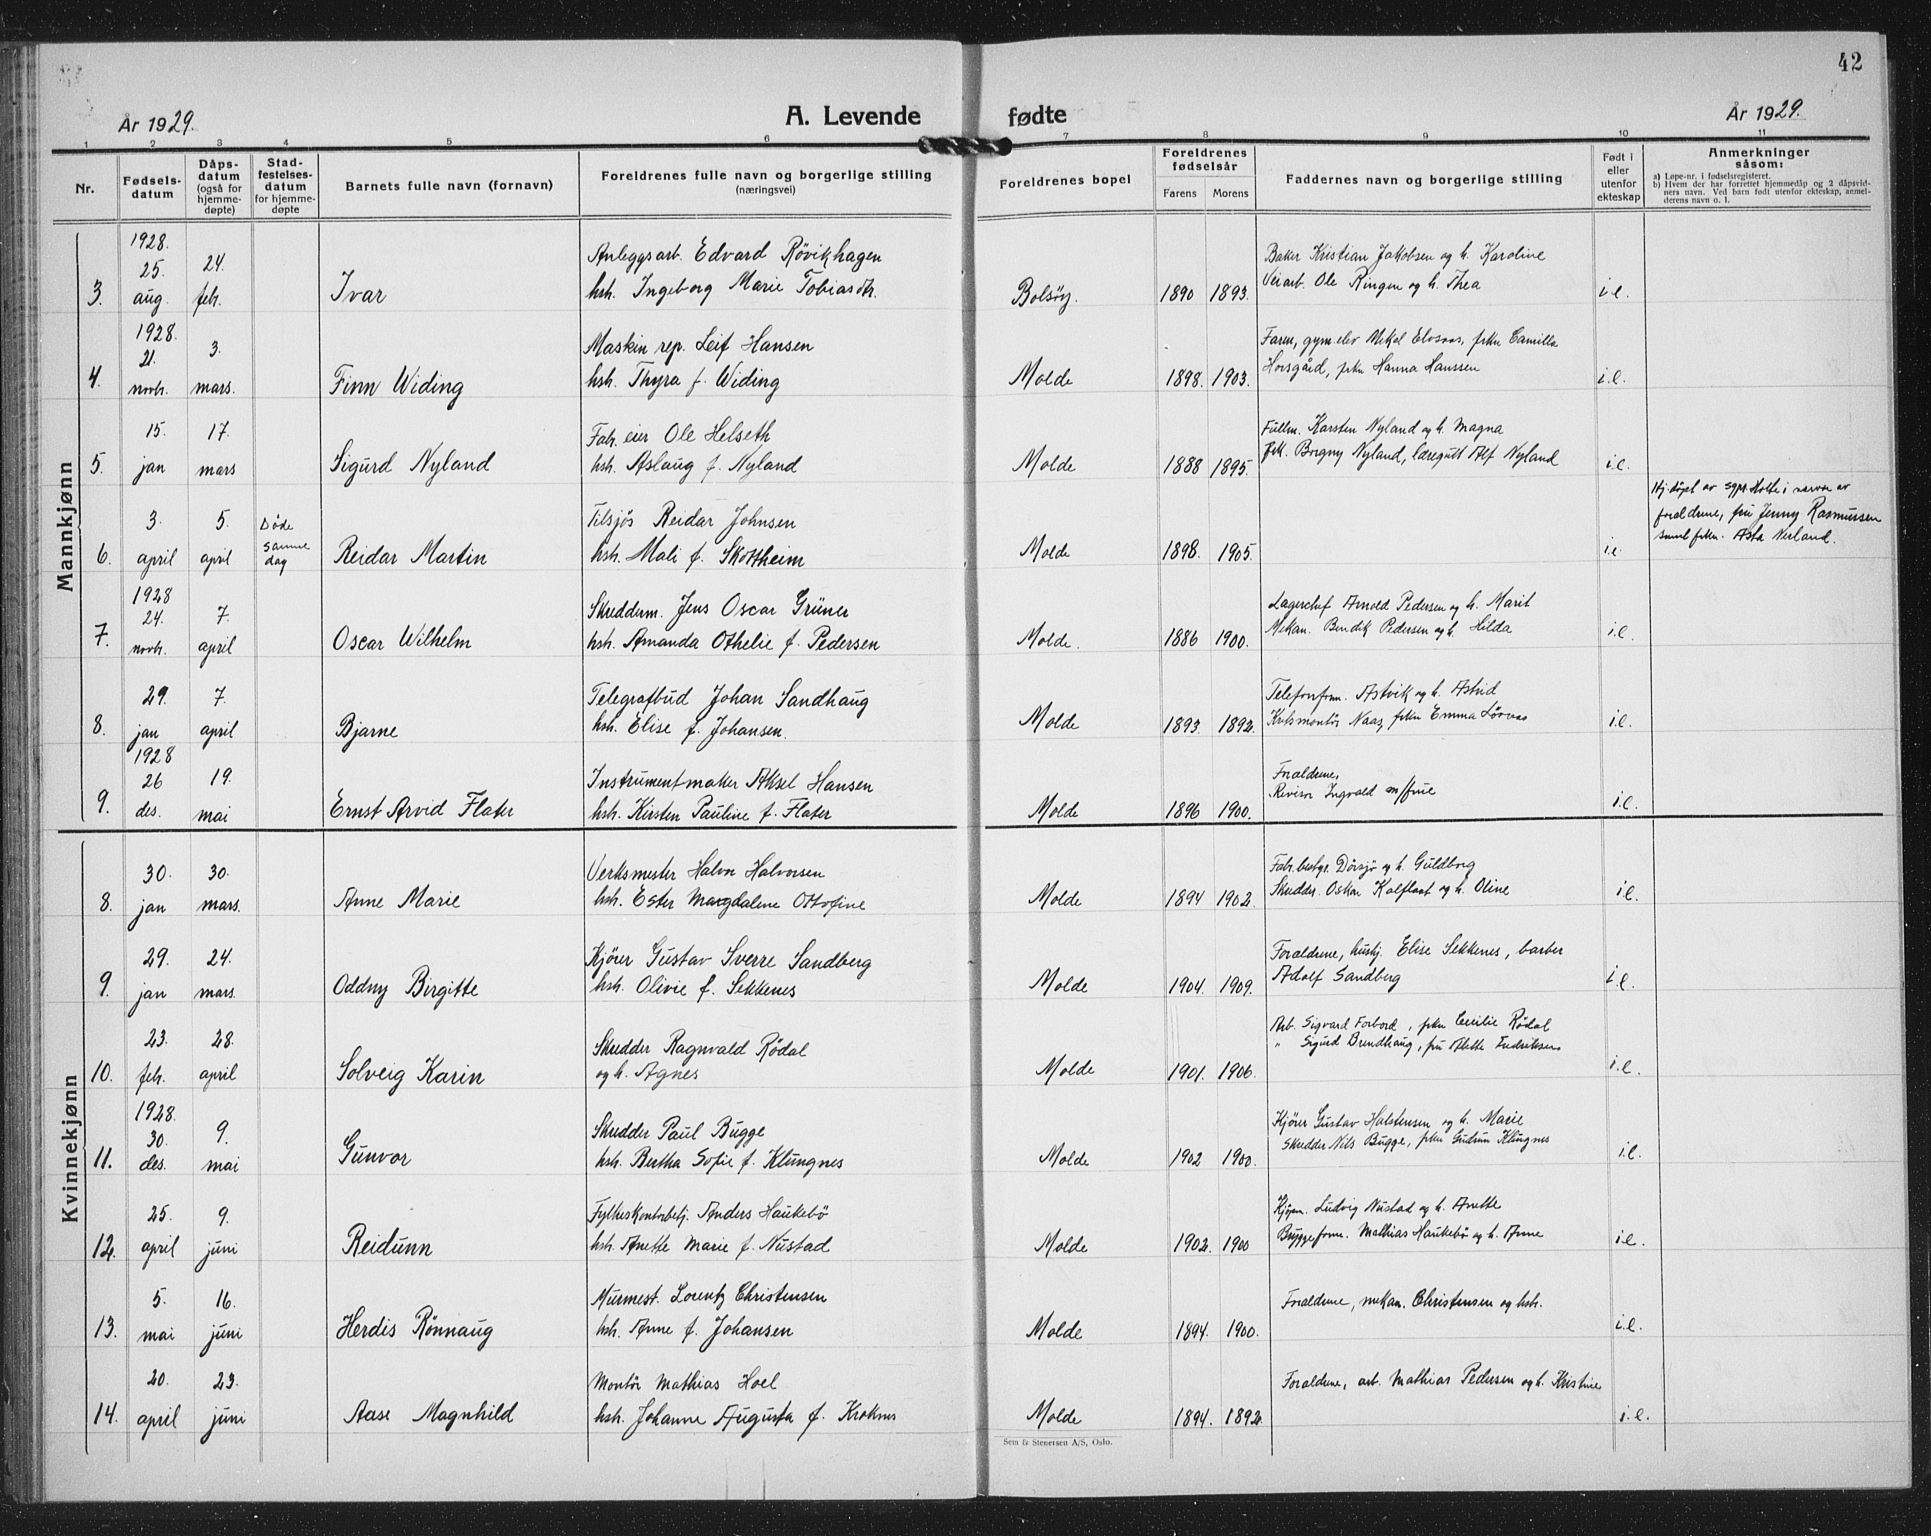 42
År 1929.
A. Levende fødte
År 1929.
1 2 3 4 5 6 7 8 9 10 11
Nr.
Fødsels-
datum
Dåps-
datum
(også for
hjemme-
døpte)
Stad-
festelses-
datum
for hjemme-
døpte
Barnets fulle navn (fornavn)
Foreldrenes fulle navn og borgerlige stilling
(næringsvei)
Foreldrenes bopel
Foreldrenes
fødselsår
Farens Morens
Faddernes navn og borgerlige stilling
Født i
eller
utenfor
ekteskap
Anmerkninger
såsom:
a) Løpe-nr. i fødselsregisteret.
b) Hvem der har forrettet hjemmedåp og 2 dåpsvid-
ners navn. Ved barn født utenfor ekteskap, anmel-
derens navn o. l.
Mannkjønn
1928.
25. 24. Anleggsarb. Edvard Røvikhagen Baker Kristian Jakobsen og h. Karoline
3. aug. feb. Ivar hsh. Ingeborg Marie Tobiasdtr. Bolsøy. 1890 1893. Veiarb. Ole Ringen og h. Thea i.e.
1928.
21. 3. Maskin rep. Leif Hansen Faren, gym.elev Mikal Elvsaas, frkn Camilla
4. novb. mars. Finn Widing hsh. Thyra f. Widing Molde 1898. 1903. Horsgård, frkn Hanna Hanssen i.e.
15. 17. Fabr. eier Ole Helseth Fullm. Karsten Nyland og h. Magna
5. jan mars Sigurd Nyland hsh. Aslaug f. Nyland Molde 1888 1895. frk. Borgny Nyland, læregutt Alf Nyland i.e.
3. 5. Døde Tilsjøs Reidar Johnsen Hj. døpt av sgpr. Holte i nærvær av
samme foreldrene, fru Jenny Rasmussen
6. april april dag Reidar Martin hsh. Mali f. Skottheim Molde 1898. 1905. i.e. samt frkn. Asta Nerland.
1928
24. 7. Skredderm. Jens Oscar Grüner Lagerchef Arnold Pedersen og h. Marit
7. novb. april Oscar Wilhelm hsh. Amanda Othelie f. Pedersen Molde. 1886 1900. Mekan. Bendik Pedersen og h. Hilda i.e.
29. 7. Telegrafbud Johan Sandhaug Telefonform. Astvik og h. Astrid
8. jan april Bjarne hsh. Elise f. Johansen. Molde 1893. 1892. Krtsmontør Naas, frkn Emma i.e.
1928
26 19. Instrumentmaker Aksel Hansen Foreldrene,
9. des. mai Ernst Arvid Flater hsh. Kirsten Pauline f. Flater Molde 1896 1900. Revisor Ingvald m/frue i.e.
Kvinnekjønn
30. 30. Verksmester Halvor Halvorsen Fabr.bestyr. Dørsjø og h. Guldborg
8. jan mars. Anne Marie hsh. Ester Margdalene Ottofine Molde 1894 1902. Skredder Oskar Kalflaat og h. Oline i.e.
29. 24. Kjører Gustav Sverre Sandberg Foreldrene, hushj. Elise Sekkenes, barber
9. jan mars. Oddny Birgitte hsh. Olivie f. Sekkenes Molde 1904. 1909. Adolf Sandberg i.e.
23. 28. Skredder Ragnvald Rødal Arb. Sigvard Forbord, frkn Cecilie Rødal
10. feb. april Solveig Karin og h. Agnes Molde 1901. 1906. " Sigurd Brendhaug, fru Endriksen i.e.
1928.
30. 9. Skredder Paul Bugge Kjører Gustav Halstensen og h. Marie
11. des. mai Gunvor hsh. Bertha Sofie f. Klungnes Molde 1902 1900. Skredder Nils Bugge, frkn Gudrun Klungnes i.e.
25. 9. Fylkeskontorbetj. Anders Haukebø Kjøpm. Ludvig Nustad og h. Anette
12. april juni Reidunn hsh. Anette Marie f. Nustad Molde 1902. 1900 Byggeform. Mathias Haukebø og h. Anne i.e.
5. 16. Murmest. Lorentz Christensen Foreldrene, mekan. Christensen og hsh.
13. mai juni Herdis Rønnaug hsh. Anne f. Johansen Molde 1894. 1900. i.e.
20. 23. Montør Mathias Hoel Foreldrene, arb. Mathias Pedersen og h. Kristine
14. april juni Aase Magnhild hsh. Johanne Augusta f. Kroknes Molde 1894. 1892. i.e.
Sem & Stenersen A/S, Oslo.